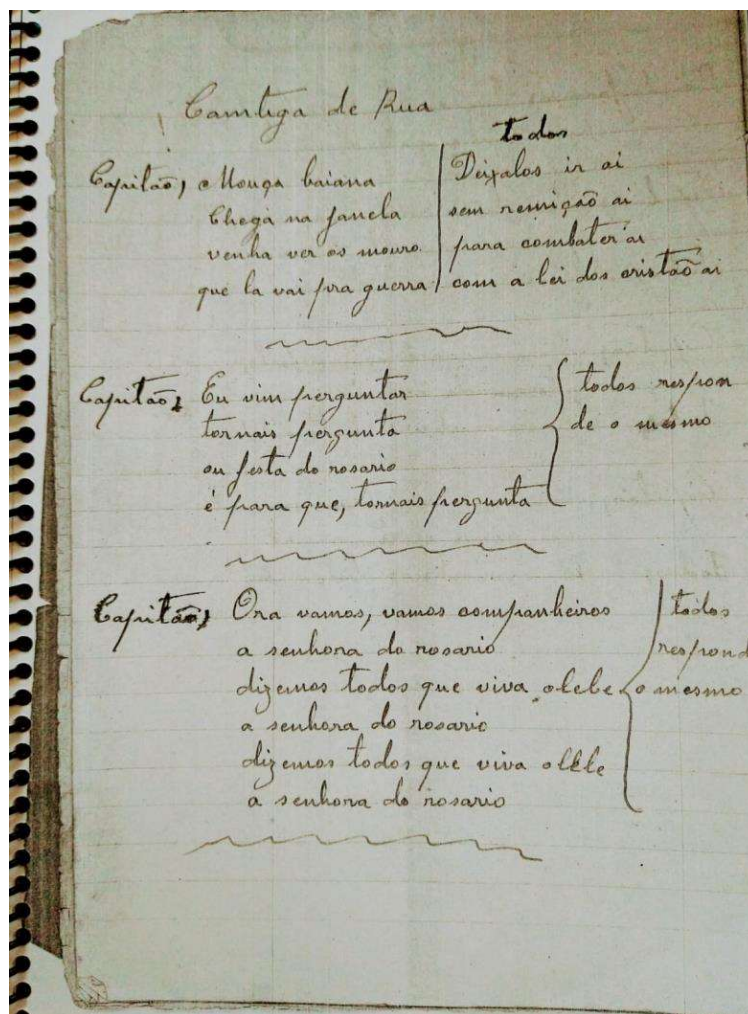 Cantiga de Rua
Capitão, Mouça baiana
Chega na janela
venha ver os mouro
que la vai pra guerra
todos
Deixalos ir ai
sem remição ai
para combater ai
com a lei dos cristão ai
Capitão, Eu vim perguntar
tornais pergunta
ou festa do rosario
é para que, tornais pergunta
todos respon
de o mesmo
Capitão, Ora vamos, vamos companheiros
a senhora do rosario
dizemos todos que viva olele
a senhora do rosario
dizemos todos que viva olele
a senhora do rosario
todos
respond
o mesmo